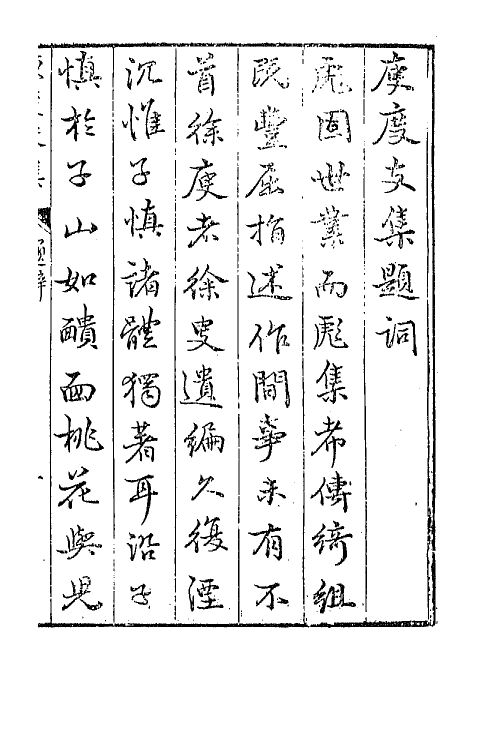 庾度支集題詞
彪固世業而彪集希傳綺組
既豐屈指述作間事未有不
首徐庾者徐叟遺編久復湮
沉惟子慎諸體獨著耳沿子
慎於子山如靧面桃花與兒